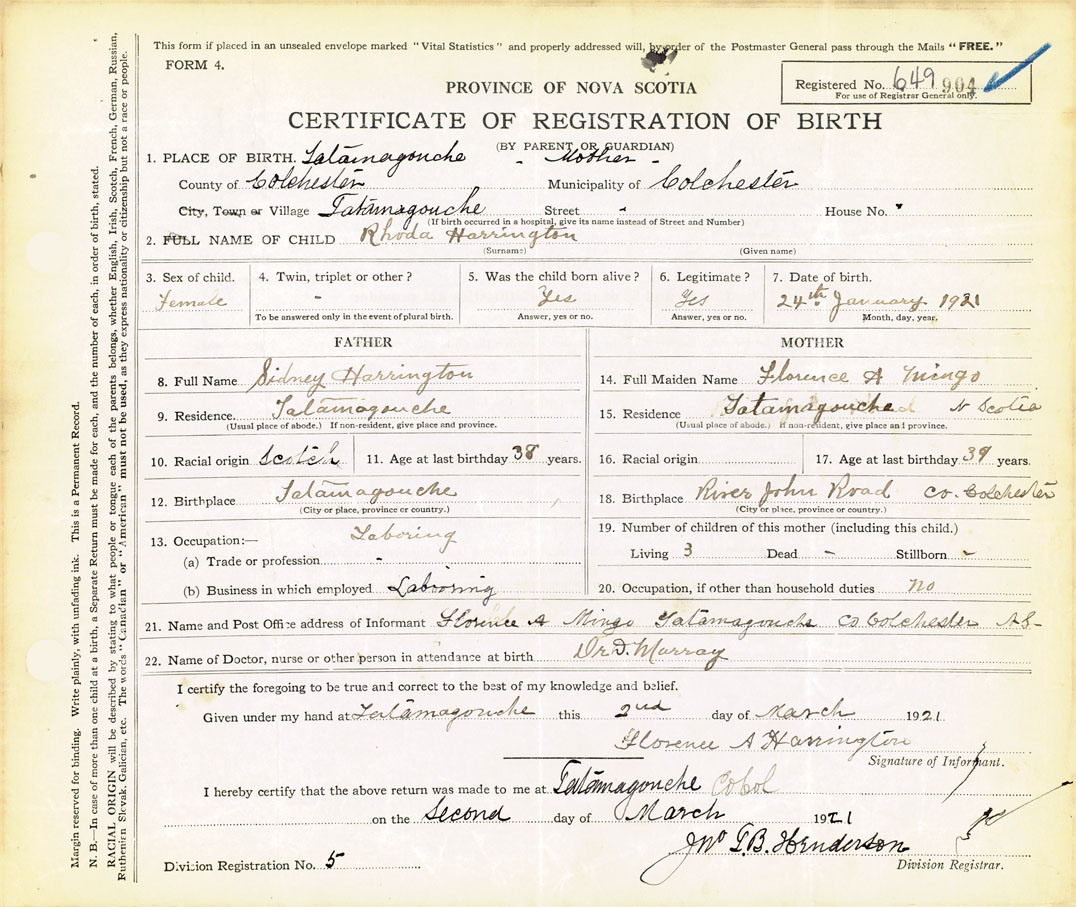 This form if placed in an unsealed envelope marked "Vital Statistics" and properly addressed will, by order of the Postmaster General pass through the Mails "FREE."
FORM 4.
Registered No. 649 904
For use of Registrar General only.
PROVINCE OF NOVA SCOTIA
CERTIFICATE OF REGISTRATION OF BIRTH
(BY PARENT OR GUARDIAN)
1. PLACE OF BIRTH. Tatamagouche - Mother -
County of Colchester Municipality of Colchester
City, Town or Village Tatamagouche Street - House No. -
(If birth occurred in a hospital, give its name instead of Street and Number)
2. FULL NAME OF CHILD Rhoda Harrington
(Surname) (Given name)
3. Sex of child. 4. Twin, triplet or other? 5. Was the child born alive? 6. Legitimate? 7. Date of birth.
Female - Yes Yes 24th January 1921
To be answered only in the event of plural birth. Answer, yes or no. Answer, yes or no. Month, day, year.
FATHER
8. Full Name Sidney Harrington
9. Residence. Tatamagouche
(Usual place of abode.) If non-resident, give place and province.
10. Racial origin Scotch 11. Age at last birthday 38 years.
12. Birthplace Tatamagouche
(City or place, province or country.)
13. Occupation:— Laboring
(a) Trade or profession -
(b) Business in which employed Laboring
MOTHER
14. Full Maiden Name Florence A Mingo
15. Residence Tatamagouche N Scotia
(Usual place of abode.) If non-resident, give place and province.
16. Racial origin 17. Age at last birthday 39 years.
18. Birthplace River John Road Co. Colchester
(City or place, province or country.)
19. Number of children of this mother (including this child.)
Living 3 Dead - Stillborn -
20. Occupation, if other than household duties no
21. Name and Post Office address of Informant Florence A Mingo Tatamagouche Co Colchester N S-
22. Name of Doctor, nurse or other person in attendance at birth Dr D. Murray
I certify the foregoing to be true and correct to the best of my knowledge and belief.
Given under my hand at Tatamagouche this 2nd day of March 1921
Florence A Harrington
Signature of Informant.
I hereby certify that the above return was made to me at Tatamagouche Co Col
on the Second day of March 1921
Jno G.B. Henderson
Division Registrar.
Division Registration No. 5
Margin reserved for binding. Write plainly, with unfading ink. This is a Permanent Record.
N. B.—In case of more than one child at a birth, a Separate Return must be made for each, and the number of each, in order of birth, stated.
RACIAL ORIGIN will be described by stating to what people or tongue each of the parents belongs, whether English, Irish, Scotch, French, German, Russian,
Ruthenian, Slovak, Galician, etc. The words "Canadian" or "American" must not be used, as they express nationality or citizenship but not a race or people.